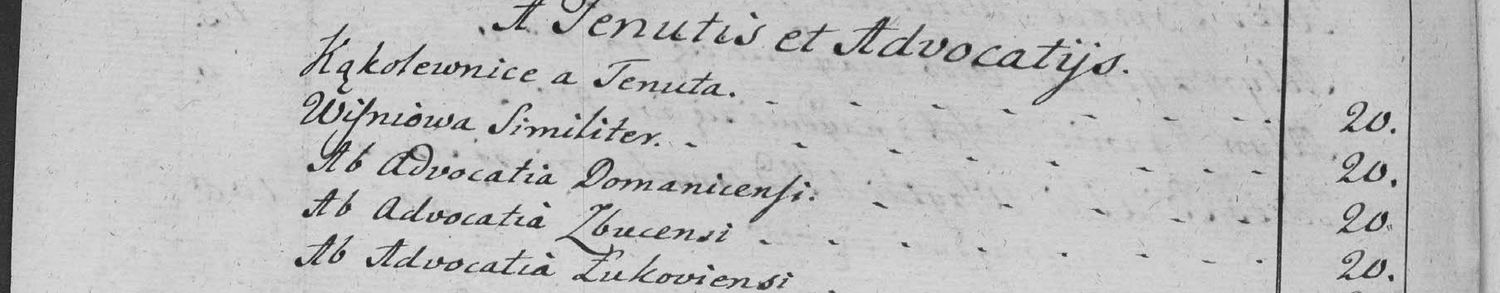 A Tenutis et Advocatijs.
Kąkolewnice a Tenuta. - - - - - - - 20.
Wiſniowa Similiter. - - - - - - - - 20.
Ab Advocatia Domanicensi. - - - - - - 20.
Ab Advocatiâ Zbucensi - - - - - - - 20.
Ab Advocatiâ Łukoviensi - 20.